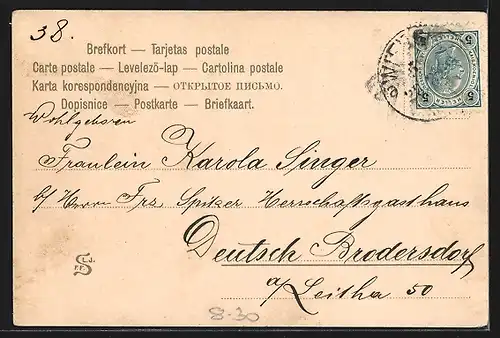 38.
Brefkort — Tarjetas postale
Carte postale — Levelező-lap — Cartolina postale
Karta korespondencyjna — ОТКРЫТОЕ ПИСЬМО.
Dopisnice — Postkarte — Briefkaart.
Wohlgeboren
Fräulein Karola Singer
b/ Herrn Frz Spitzer Herrschaftsgasthaus
Deutsch Brodersdorf
a/ Leitha 50
8-30
5 5
5 5